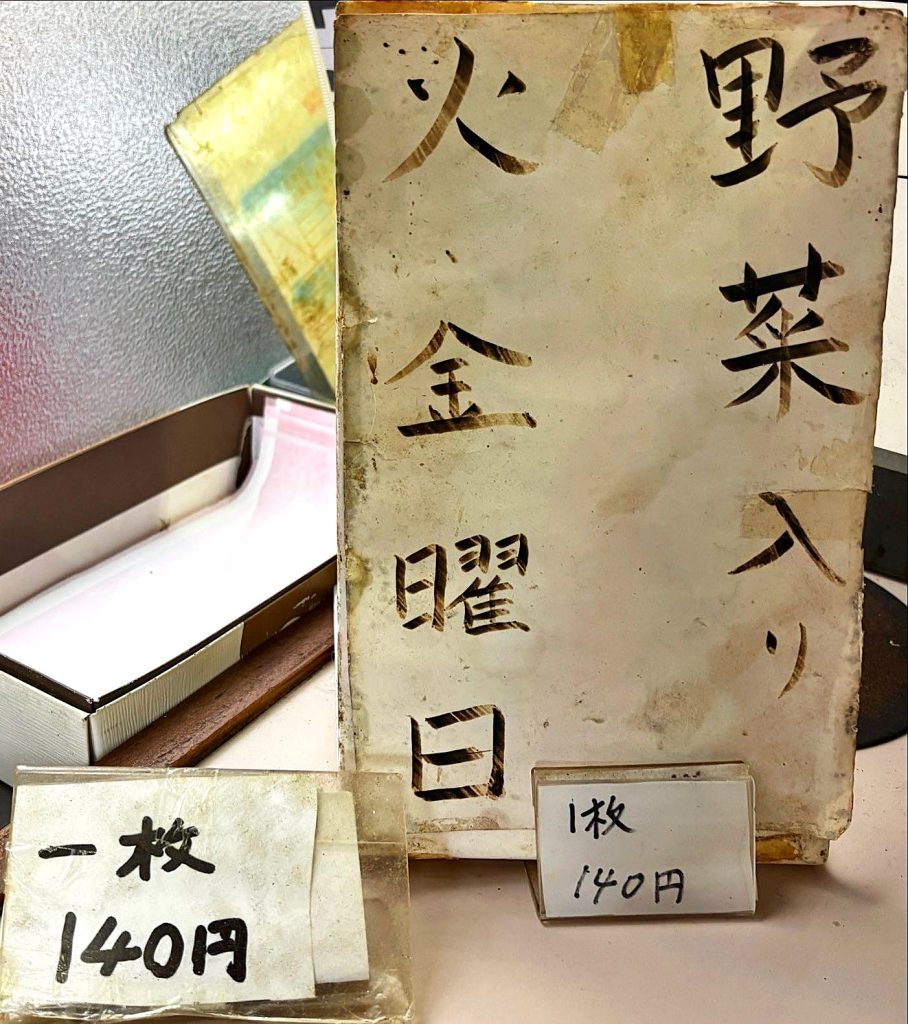 野菜入り
火金曜日
一枚
140円
1枚
140円